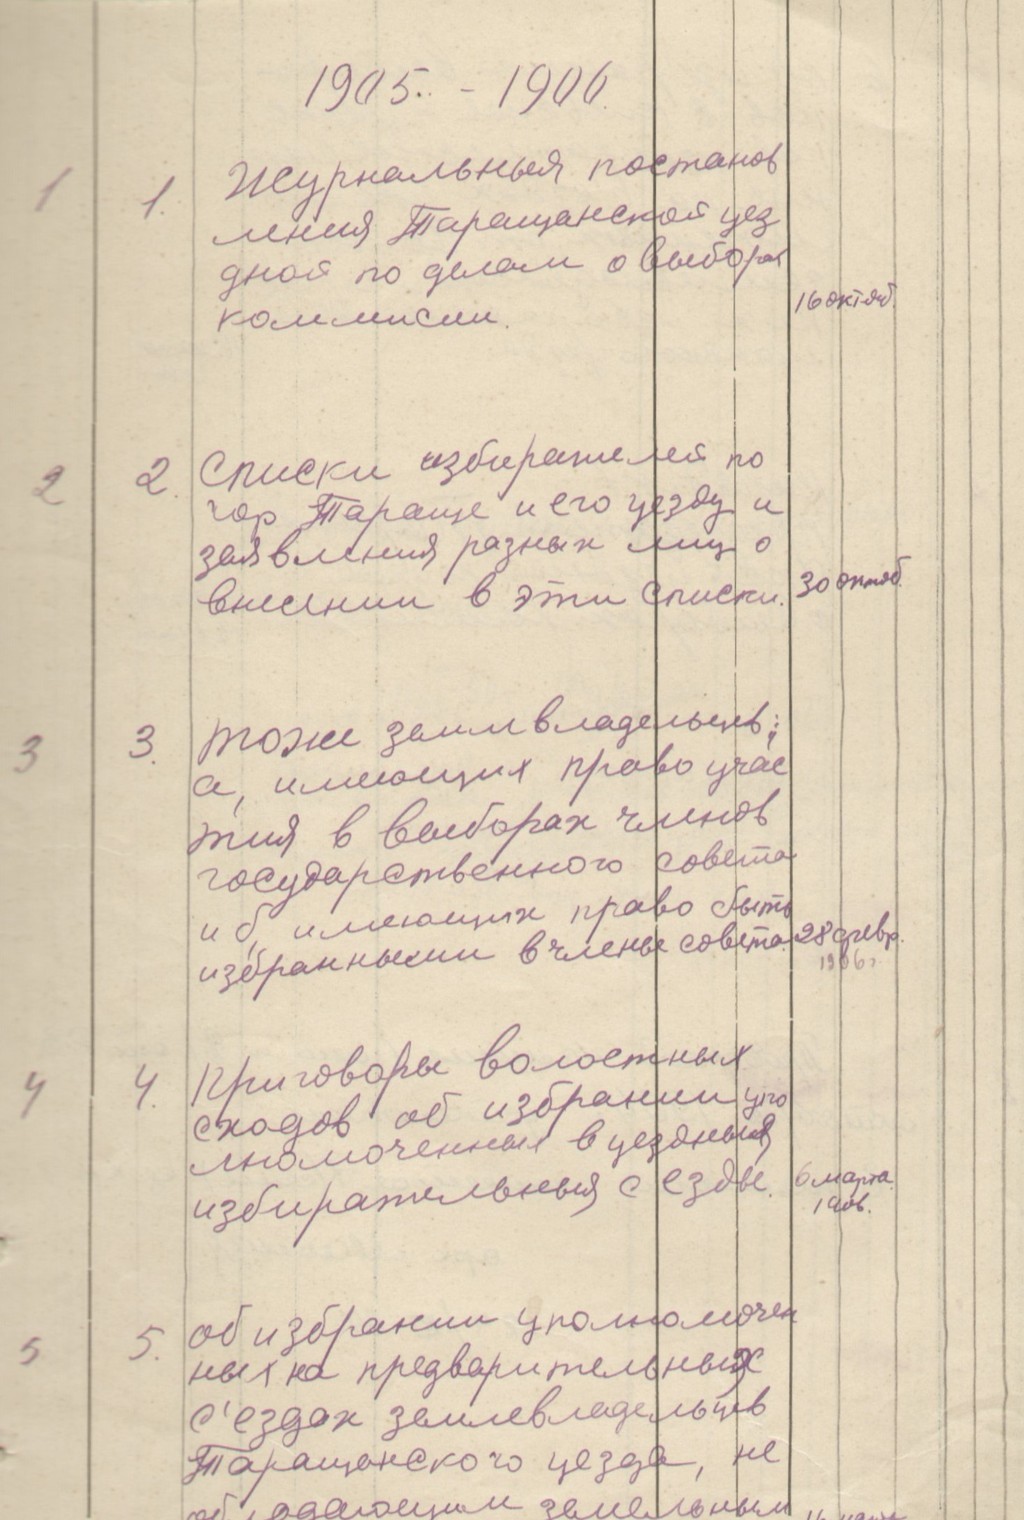 1905. - 1906.
1 1. Журнальныя постанов
ления Таращанской уез
дной по делам о выборах
коммисии. 16 октяб.
2 2. Списки избирателей по
гор Тараще и его уезду и
заявления разных лиц о
внесении в эти списки. 30 октяб.
3 3. тоже землвладельцев;
а, имеющих право учас
тия в выборах членов
государственного совета
и б, имеющих право быть
избранными в члены совета. 28 февр.
1906 г.
4 4. Приговоры волостных
сходов об избрании упо
лномоченных в уездныя
избирательныя с езды. 6 марта
1906.
5 5. об избрании уполномочен
ных на предварительных
с'ездах землевладельцев
Таращанского уезда, не
обладающим земельным